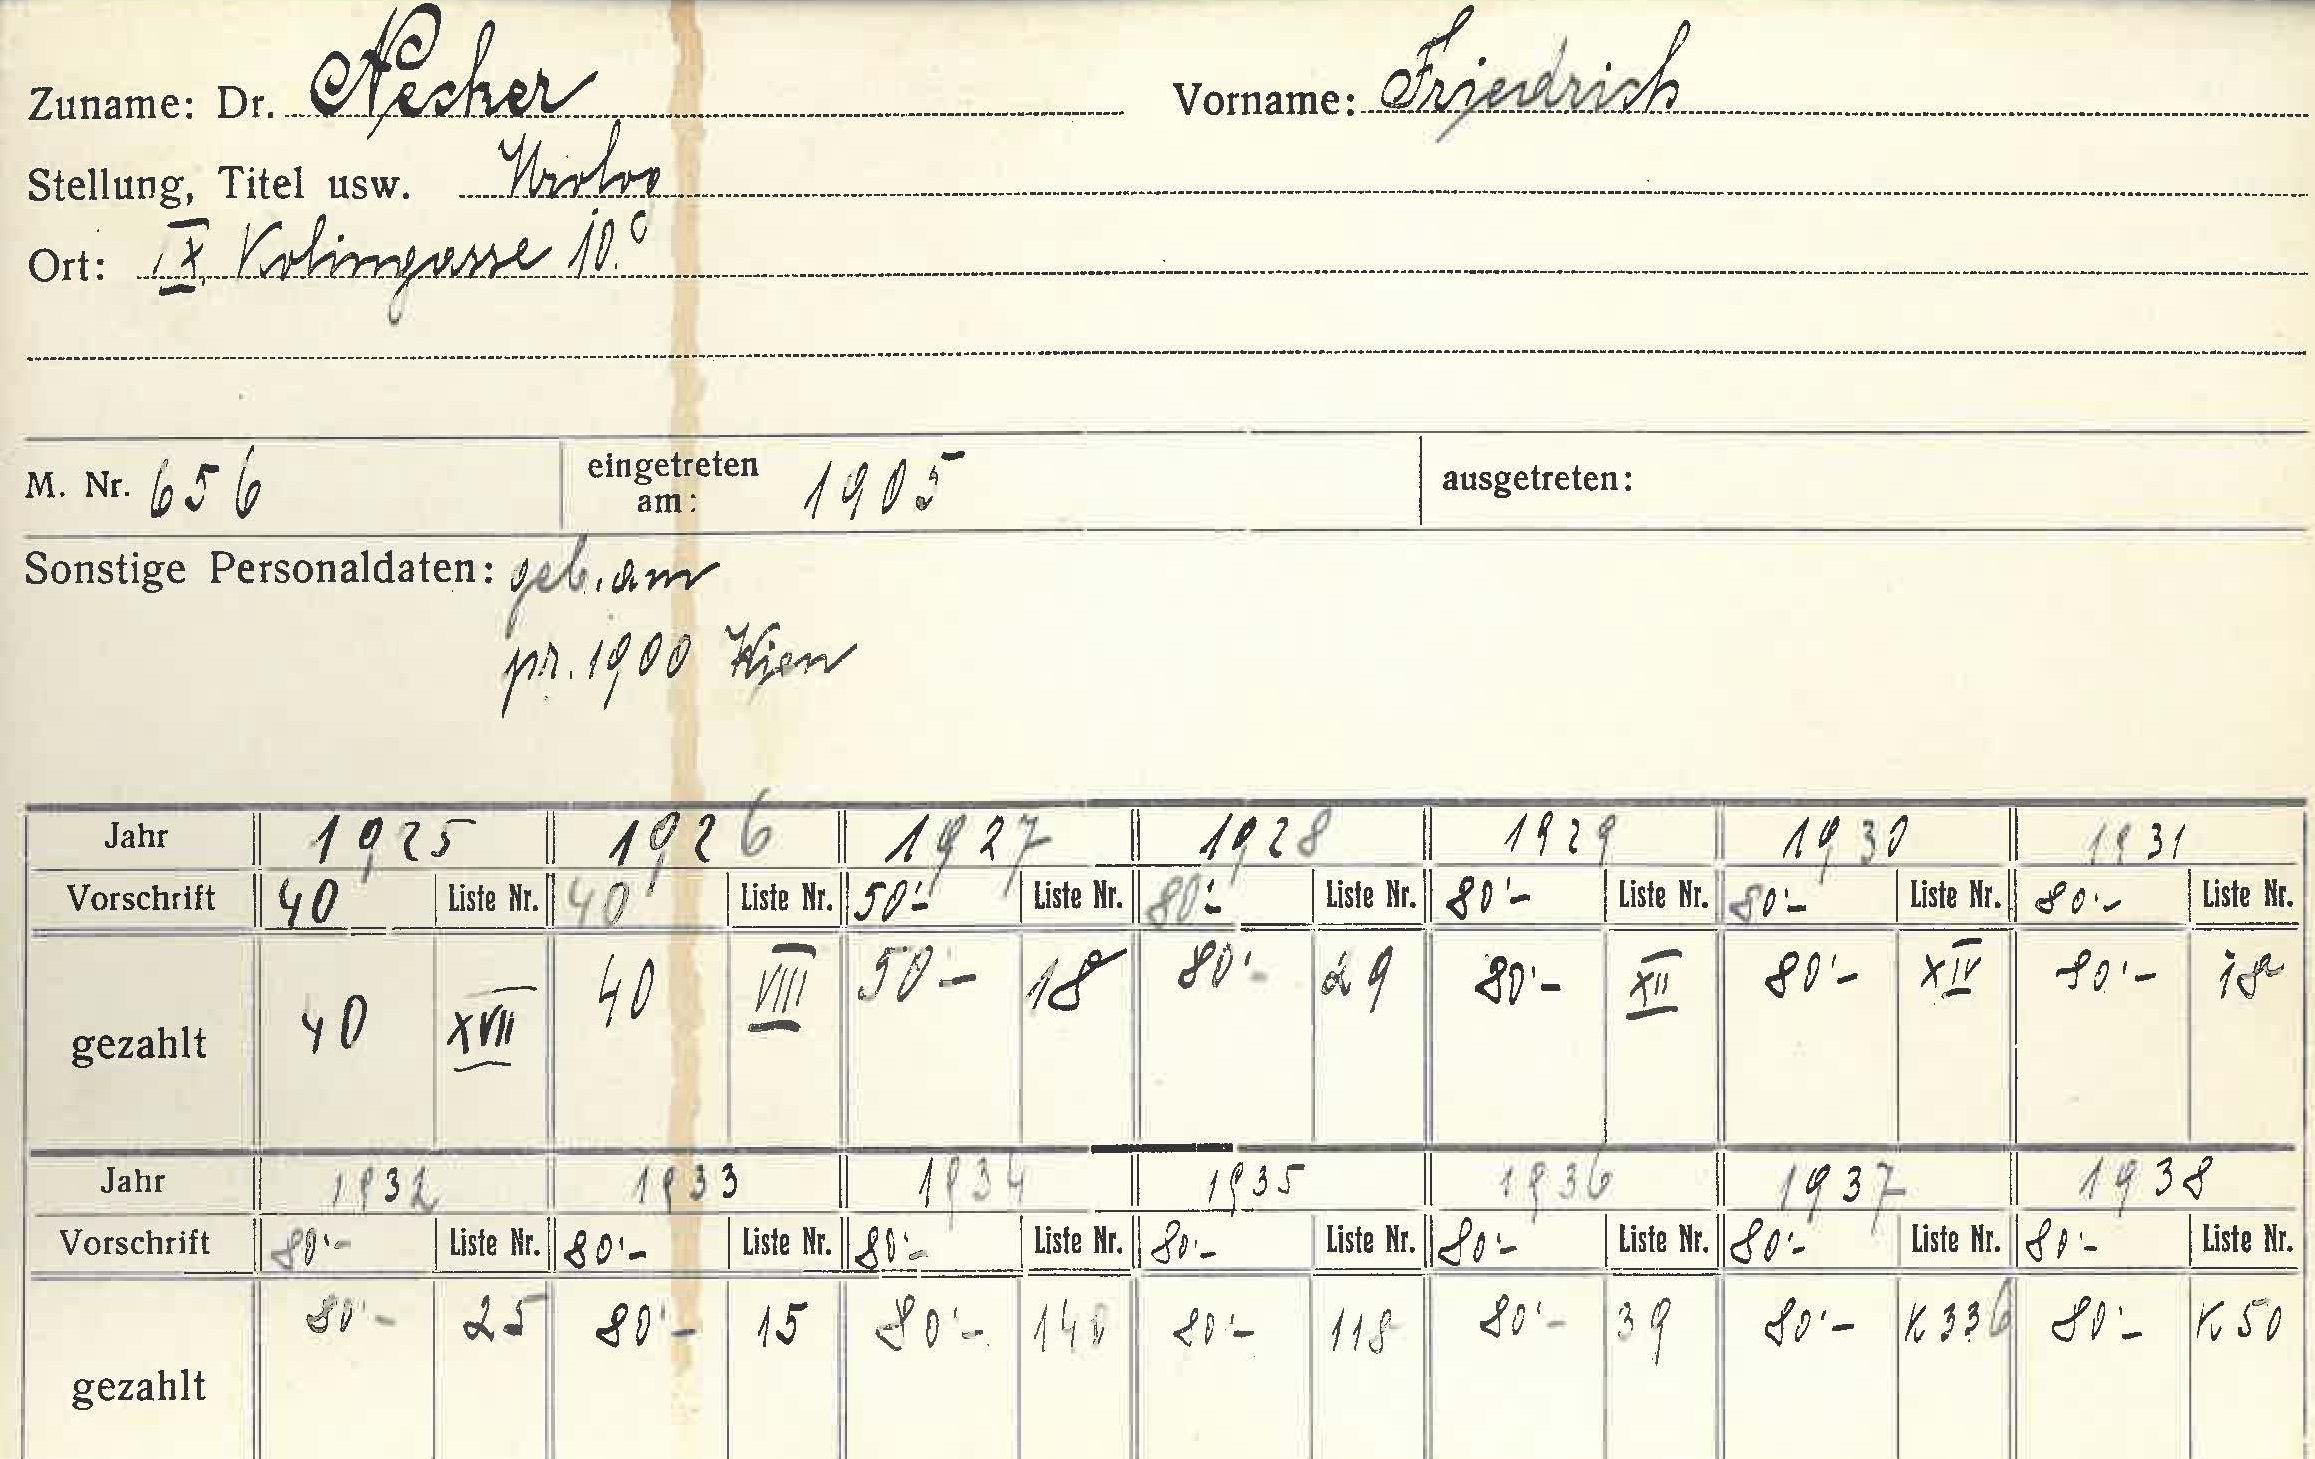 Zuname: Dr. Necker Vorname: Friedrich
Stellung, Titel usw. Urolog
Ort: IX. Kolingasse 10.
M. Nr. 656 eingetreten am: 1905 ausgetreten:
Sonstige Personaldaten: geb. am
pr. 1900 Wien
Jahr 1925 1926 1927 1928 1929 1930 1931
Vorschrift 40 Liste Nr. 40 Liste Nr. 50'- Liste Nr. 80'- Liste Nr. 80'- Liste Nr. 80'- Liste Nr. 80'- Liste Nr.
gezahlt 40 XVII 40 VIII 50'- 18 80'- 29 80'- XII 80'- XIV 80'- 18
Jahr 1932 1933 1934 1935 1936 1937 1938
Vorschrift 80'- Liste Nr. 80'- Liste Nr. 80'- Liste Nr. 80'- Liste Nr. 80'- Liste Nr. 80'- Liste Nr. 80'- Liste Nr.
gezahlt 80'- 25 80'- 15 80'- 140 80'- 118 80'- 39 80'- K 336 80'- K 50